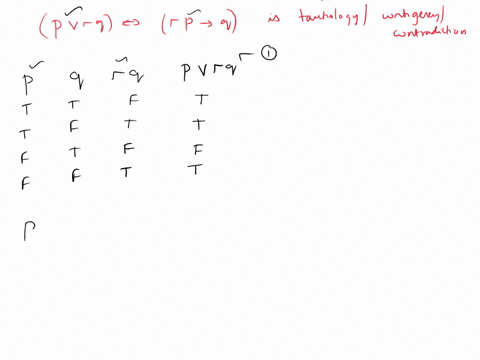 (p ∨ ⌐q) ⇔ (⌐p → q) is tautology/ contigency/
contradiction
p q ⌐q p ∨ ⌐q ①
T T F T
T F T T
F T F F
F F T T